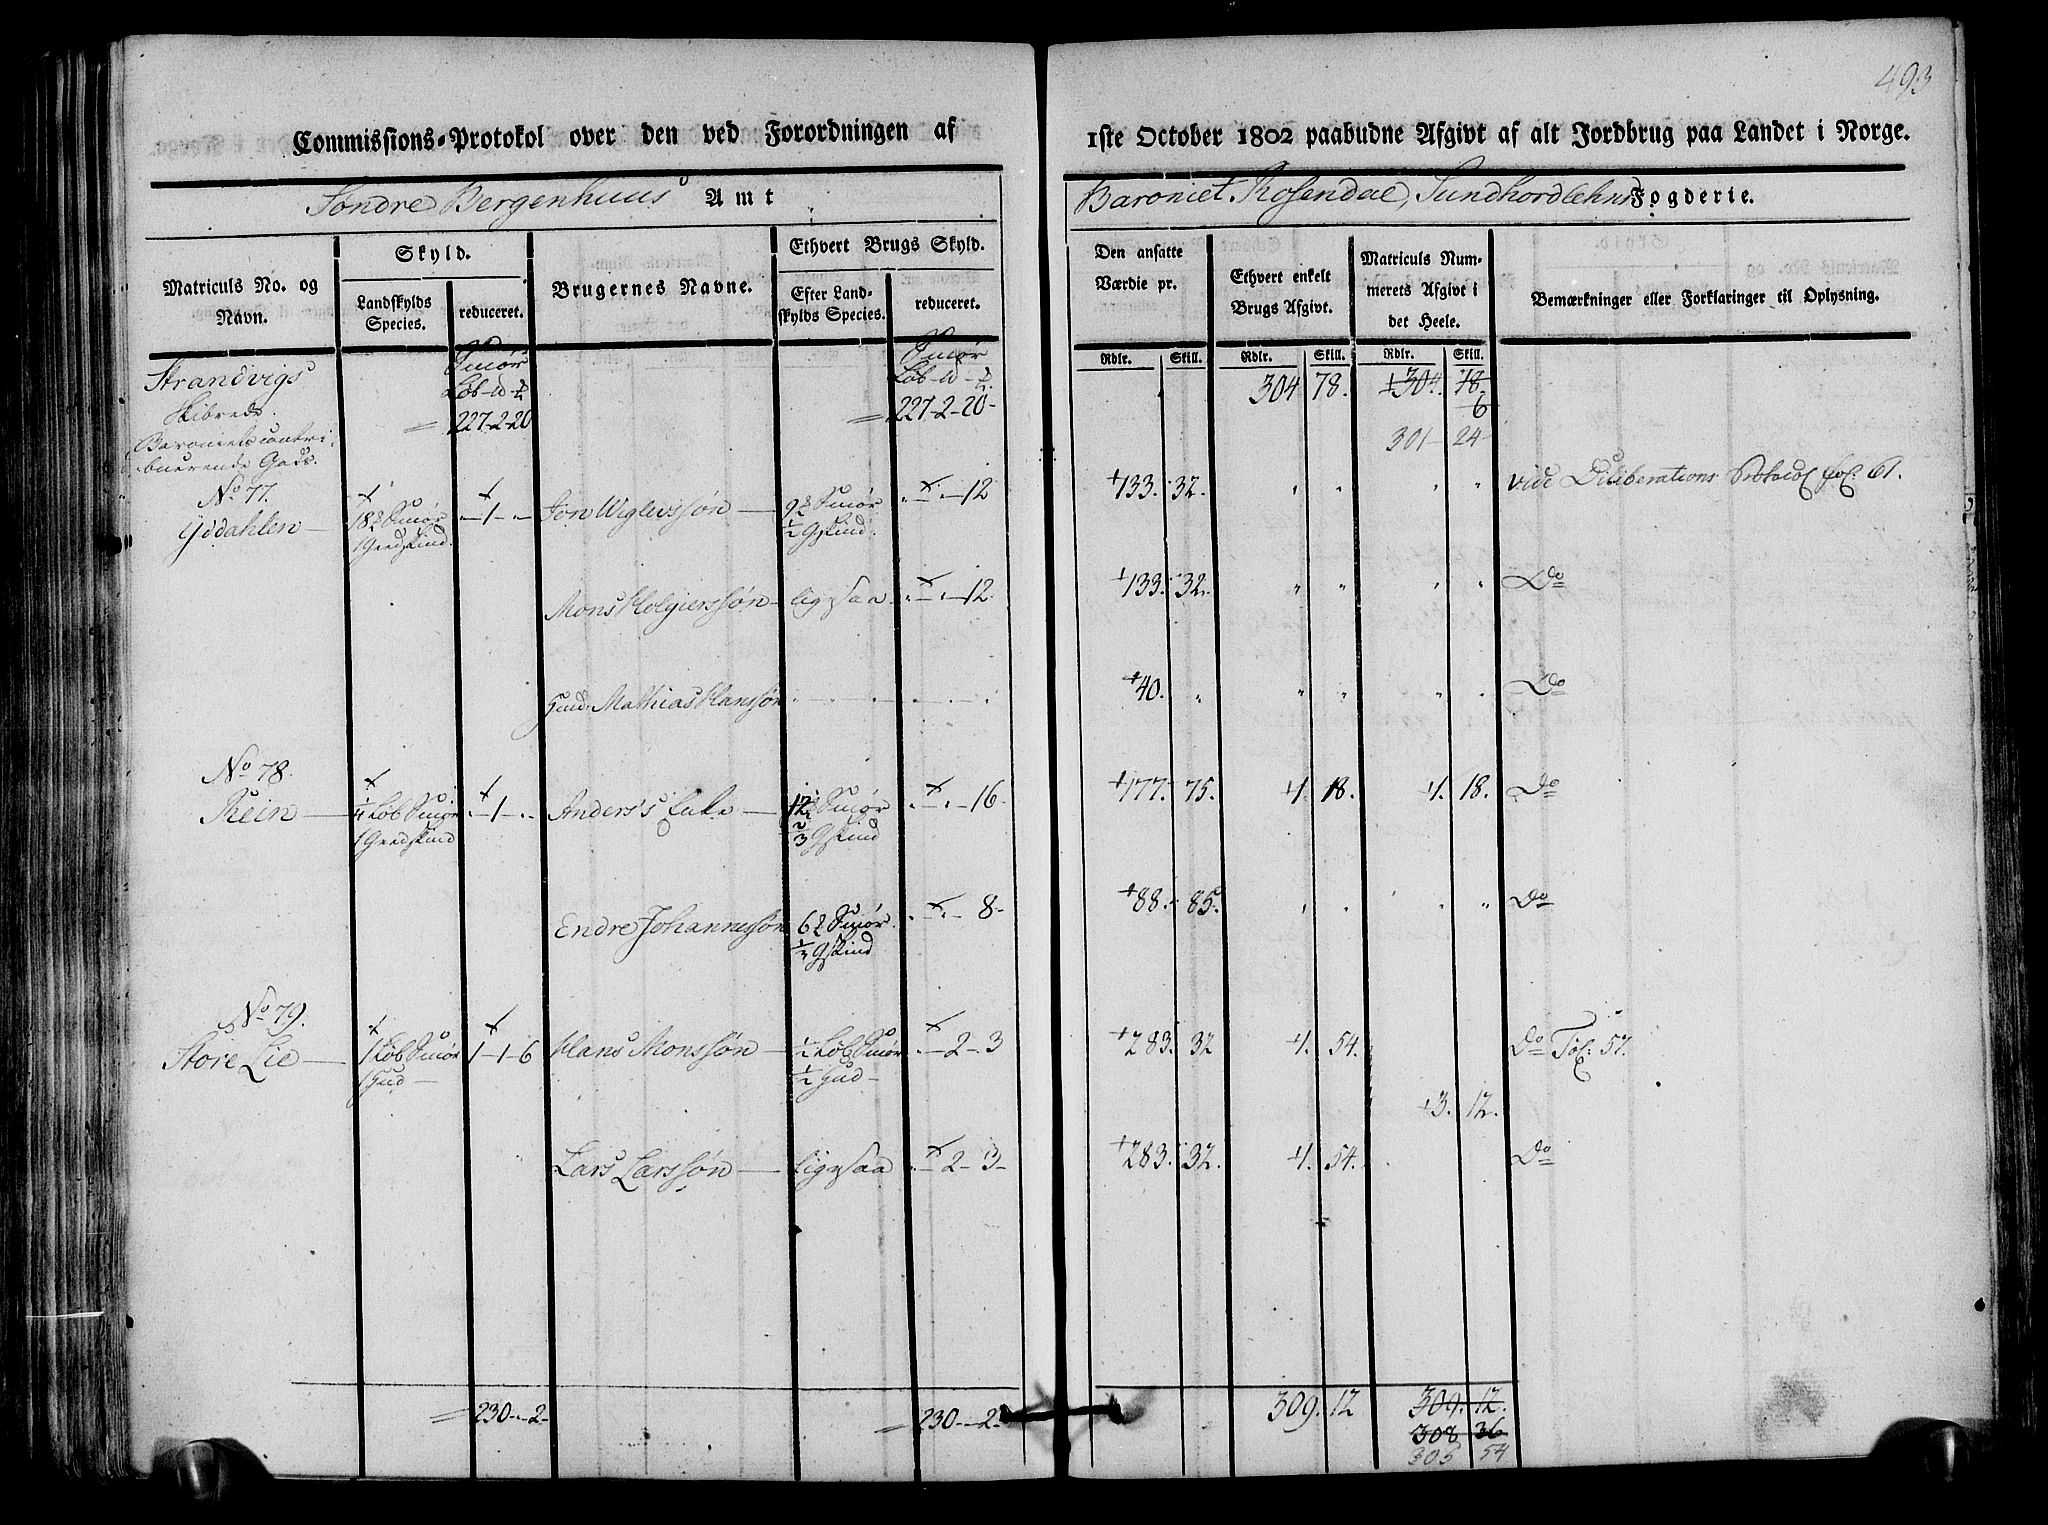 493
Commissions-Protokol over den ved Forordningen af 1ste October 1802 paabudne Afgivt af alt Jordbrug paa Landet i Norge.
Søndre Bergenhuus Amt
Baroniet Rosendal, Sundhordlehns Fogderie.
Matriculs No. og Navn.
Skyld.
Landskylds Species.
reduceret.
Brugernes Navne.
Ethvert Brugs Skyld.
Efter Landskylds Species.
reduceret.
Den ansatte Værdie pr.
Ethvert enkelt Brugs Afgivt.
Matriculs Nummerets Afgivt i det Heele.
Bemærkninger eller Forklaringer til Oplysning.
Rdlr. Skill. Rdlr. Skill. Rdlr. Skill.
Strandvigs Smør Smør
Skibrede 227-2-20 227-2-20- 304 78. 304. 78.
6
Baroniets contri- 301- 24-
buerende Gods.
No 77.
Yddahlen - 18 Smør -1- Jon Wiglevssøn - 9 Smør -12 133. 32. vide Deliberations Protocol fol. 61.
1 Geedskind. ½ Gskind.
Mons Holgierssøn - ligesaa -12. 133. 32. Do
Huud. Mathias Hanssøn 40. Do
No 78.
Rein - ¼ Løb Smør -1- Anders - 12 Smør -16- 177. 75. 1. 18. 1. 18. Do
1 Geedskind ⅔ Gskind
Endre Johannessøn 6 Smør - 8- 88. 85. Do
⅓ Gskind
No 79.
Store Lie - 1 Løb Smør 1-1-6 Hans Monssøn - ½ Løb Smør -2-3 283. 32 1. 54. Do Fol: 57.
1 Hud - ½ Hud -
3. 12.
Lars Larssøn - ligesaa -2-3- 283. 32. 1. 54. Do
230-"-2- 230-"-2- 309. 12 309. 12.
308 36
305 54